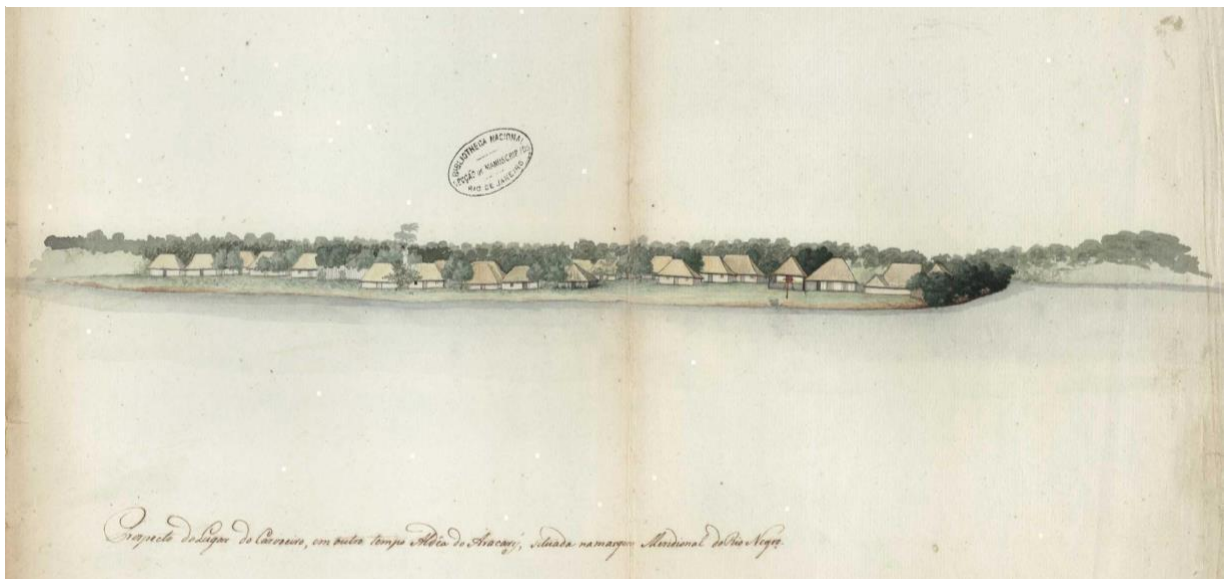 BIBLIOTHECA NACIONAL
SECÇÃO de MANUSCRIPTOS
RIO DE JANEIRO
Prospecto do Lugar do Carvoeiro, em outro tempo Aldêa do Aracarý, situada na margem Meridional do Rio Negro.